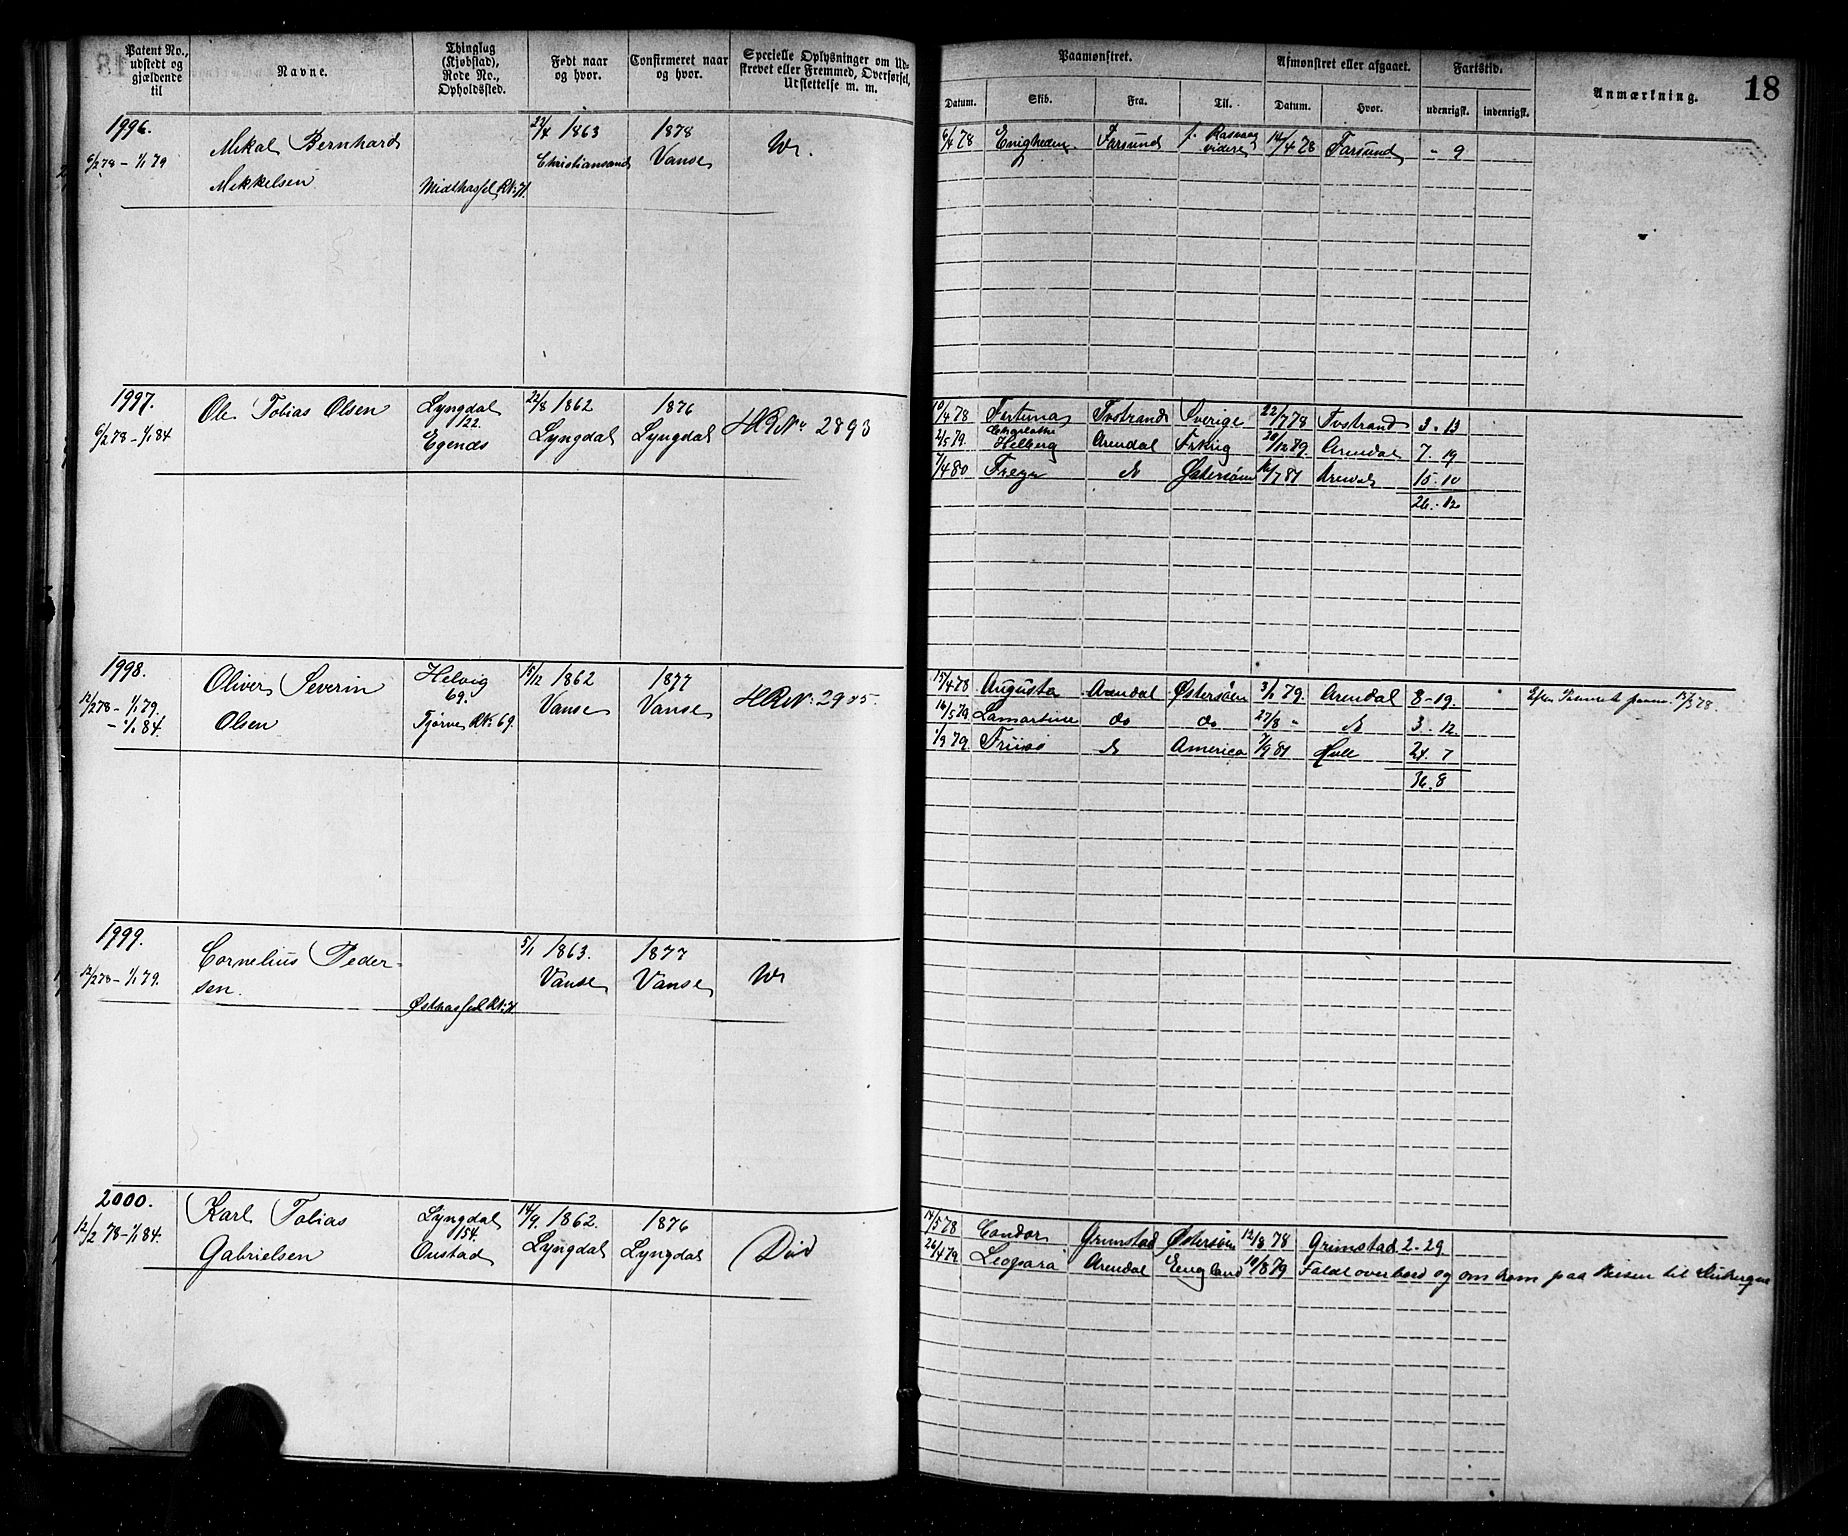 Patent No., udstedt og gjældende til
Navne.
Thinglag (Kjøbstad), Rode No., Opholdssted.
Født naar og hvor.
Confirmeret naar og hvor.
Specielle Oplysninger om Udskrevet eller Fremmed, Overførsel, Udslettelse m. m.
Paamønstret.
Afmønstret eller afgaaet.
Fartstid.
Anmærkning.
18
Datum.
Skib.
Fra.
Til.
Datum.
Hvor.
udenrigsk.
indenrigsk.
1996.
6/2 78 - 1/1 79
Mikal Bernhard
Mikkelsen
Midthassel RN: 71.
22/4 1863
Christiansand
1878
Vanse
Wr.
6/4 78 Enigheden Farsund f. Rasvaag 14/4 78 Farsund - 9
videre
1997.
6/2 78 - 1/1 84
Ole Tobias Olsen
Lyngdal
122.
Egends
22/8 1862
Lyngdal
1876
Lyngdal
HR No 2893
10/4 78 Fortuna Tvstrand Sverige 22/7 78 Tvstrand 3. 13
2/5 79. Charlotte Helberg Arendal Frkrig 20/12 79. Arendal 7. 19
7/4 80 Freya do Østersøen 16/7 81 Arendal 15. 10
26. 12
1998.
12/2 78 - 1/1 79.
- 1/1 84.
Oliver Severin
Olsen
Helvig
69.
Tjørve RN: 69.
15/12 1862
Vanse
1877
Vanse
HR No: 2905.
15/4 78 Augusta Arendal Østersøen 3/1 79. Arendal 8 - 19. Efter 13/3 78.
16/5 79 Lamartine do do 27/8 - do 3. 12
1/9 79. do America 7/9 81 Hull 24. 7
36. 8
1999.
12/2 78 - 1/1 79.
Cornelius Peder-
sen.
Østhassel RN: 71
5/1 1863.
Vanse
1877
Vanse
Wr
2000.
12/2 78 - 1/1 84.
Karl Tobias
Gabrielsen
Lyngdal
154.
Oustad
14/9. 1862.
Lyngdal
1876
Lyngdal
Död
14/5 78 Condor Grimstad Østersøen 12/8 78 Grimstad 2 - 29
26/4 79 Leopard Arendal England 10/8 79 Faldt overbord og omkom paa Reisen til